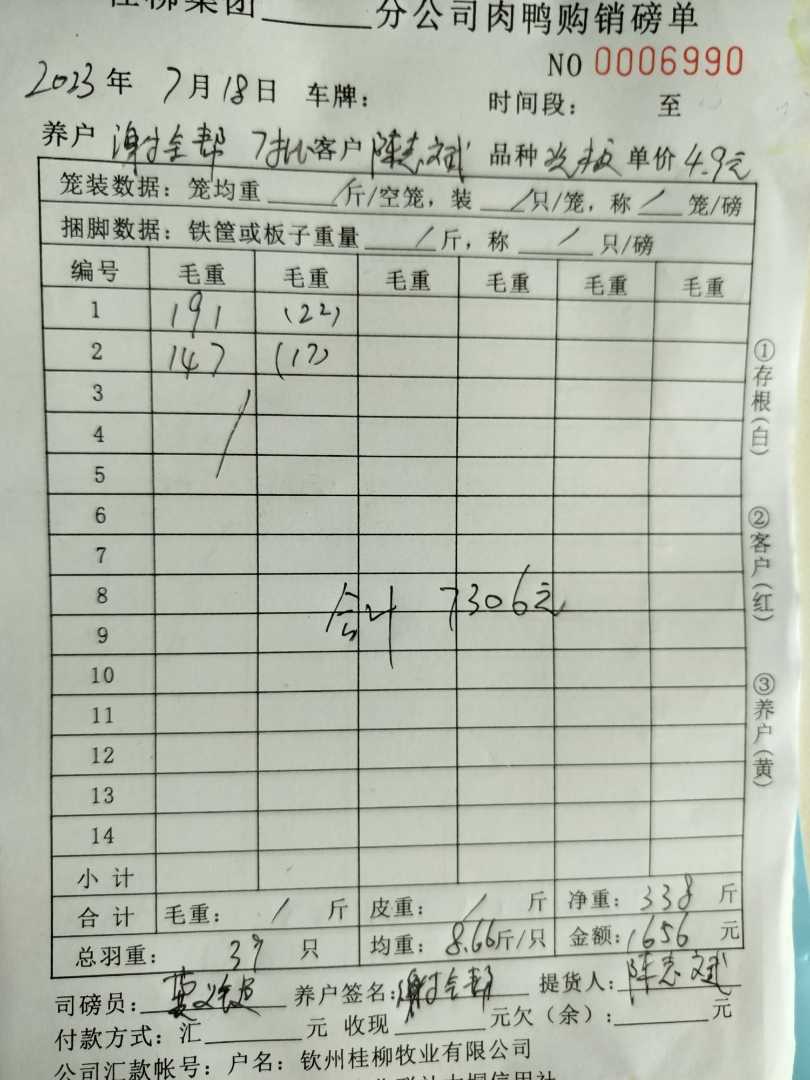 桂柳集团______分公司肉鸭购销磅单
NO 0006990
2023年 7月18日 车牌: 时间段: 至
养户 谢全帮 7批 客户 陈志斌 品种 单价 4.9元
笼装数据: 笼均重 / 斤/空笼, 装 / 只/笼, 称 / 笼/磅
捆脚数据: 铁筐或板子重量 / 斤, 称 / 只/磅
编号 毛重 毛重 毛重 毛重 毛重 毛重
1 191 (22)
2 147 (17)
3
4
5
6
7
8
合计 7306元
9
10
11
12
13
14
小计
合计 毛重: / 斤 皮重: / 斤 净重: 338 斤
总羽重: 39 只 均重: 8.66斤/只 金额: 1656 元
司磅员: 养户签名: 谢全帮 提货人: 陈志斌
付款方式: 汇______元 收现______元欠(余):______元
公司汇款帐号: 户名: 钦州桂柳牧业有限公司
①存根(白)
②客户(红)
③养户(黄)